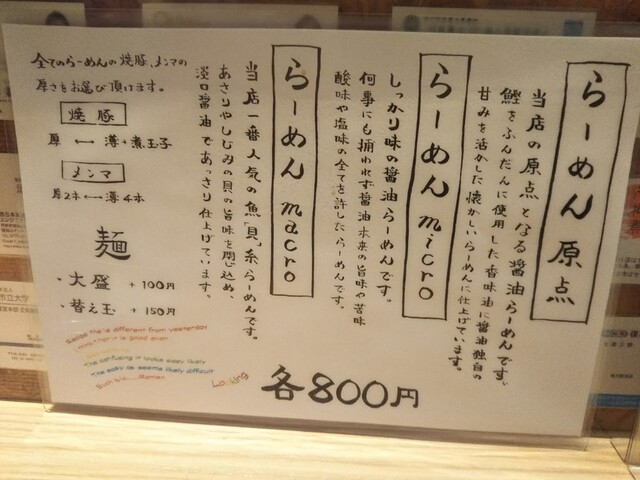 らーめん 原点
当店の原点となる醤油らーめんです。
鰹をふんだんに使用した香味油に醤油独自の
甘みを活かした懐かしいらーめんに仕上げています。
らーめん micro
しっかり味の醤油らーめんです。
何事にも捕われず醤油本来の旨味や苦味
酸味や塩味の全てを許したらーめんです。
らーめん macro
当店一番人気の魚「貝」系らーめんです。
あさりやしじみの貝の旨味を閉じ込め、
淡口醤油であっさり仕上げています。
全てのらーめんの焼豚、メンマの
厚さをお選び頂けます。
焼豚
厚 ←→ 薄+煮玉子
メンマ
厚2本←→薄4本
麺
・大盛 +100円
・替え玉 +150円
is different from yesterday
is good even
The confusing it looks easy likely
The easy as seems likely difficult
Such is
Looking
各800円
市立大学